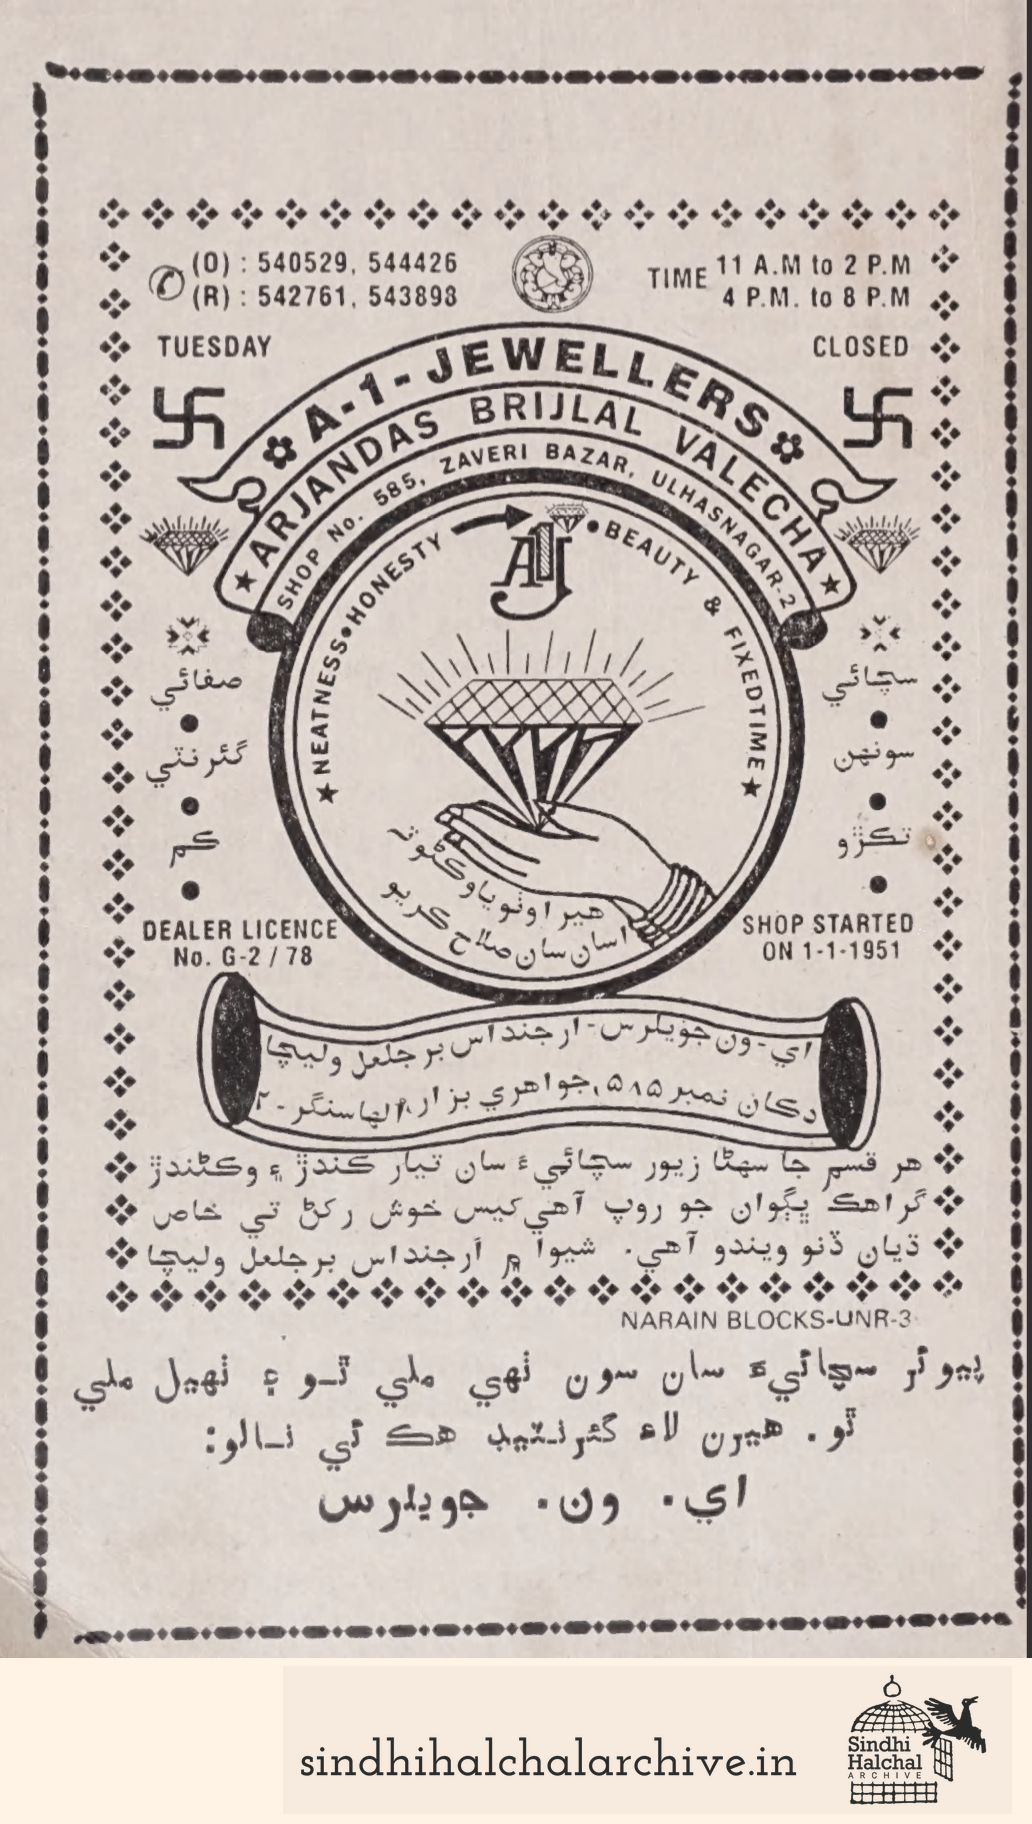 (O) : 540529, 544426
(R) : 542761, 543898
TIME 11 A.M to 2 P.M
4 P.M. to 8 P.M
TUESDAY
CLOSED
A-1-JEWELLERS
ARJANDAS BRIJLAL VALECHA
SHOP No. 585, ZAVERI BAZAR, ULHASNAGAR-2
NEATNESS • HONESTY
BEAUTY & FIXEDTIME
AJ1
سچائي
سونهن
تڪڙو
صفائي
گئرنٽي
ڪم
هيرا وٺو يا وڪڻو ته
اسان سان صلاح ڪريو
DEALER LICENCE
No. G-2 / 78
SHOP STARTED
ON 1-1-1951
اي-ون جويلرس-ارجنداس برجلعل وليچا
دڪان نمبر ۵۸۵، جواهري بزار، الهاسنگر-۲
هر قسم جا سهڻا زيور سچائيءَ سان تيار ڪندڙ ۽ وڪڻندڙ
گراهڪ ڀڳوان جو روپ آهي کيس خوش رکڻ تي خاص
ڌيان ڏنو ويندو آهي. شيوا ۾ ارجنداس برجلعل وليچا
NARAIN BLOCKS-UNR-3
پيوئر سچائيءَ سان سون ٺهي ملي ٿو ۽ ٺهيل ملي
ٿو. هيرن لاءِ گئرنٽيڊ هڪ ئي نالو:
اي. ون. جويلرس
sindhihalchalarchive.in
Sindhi
Halchal
ARCHIVE